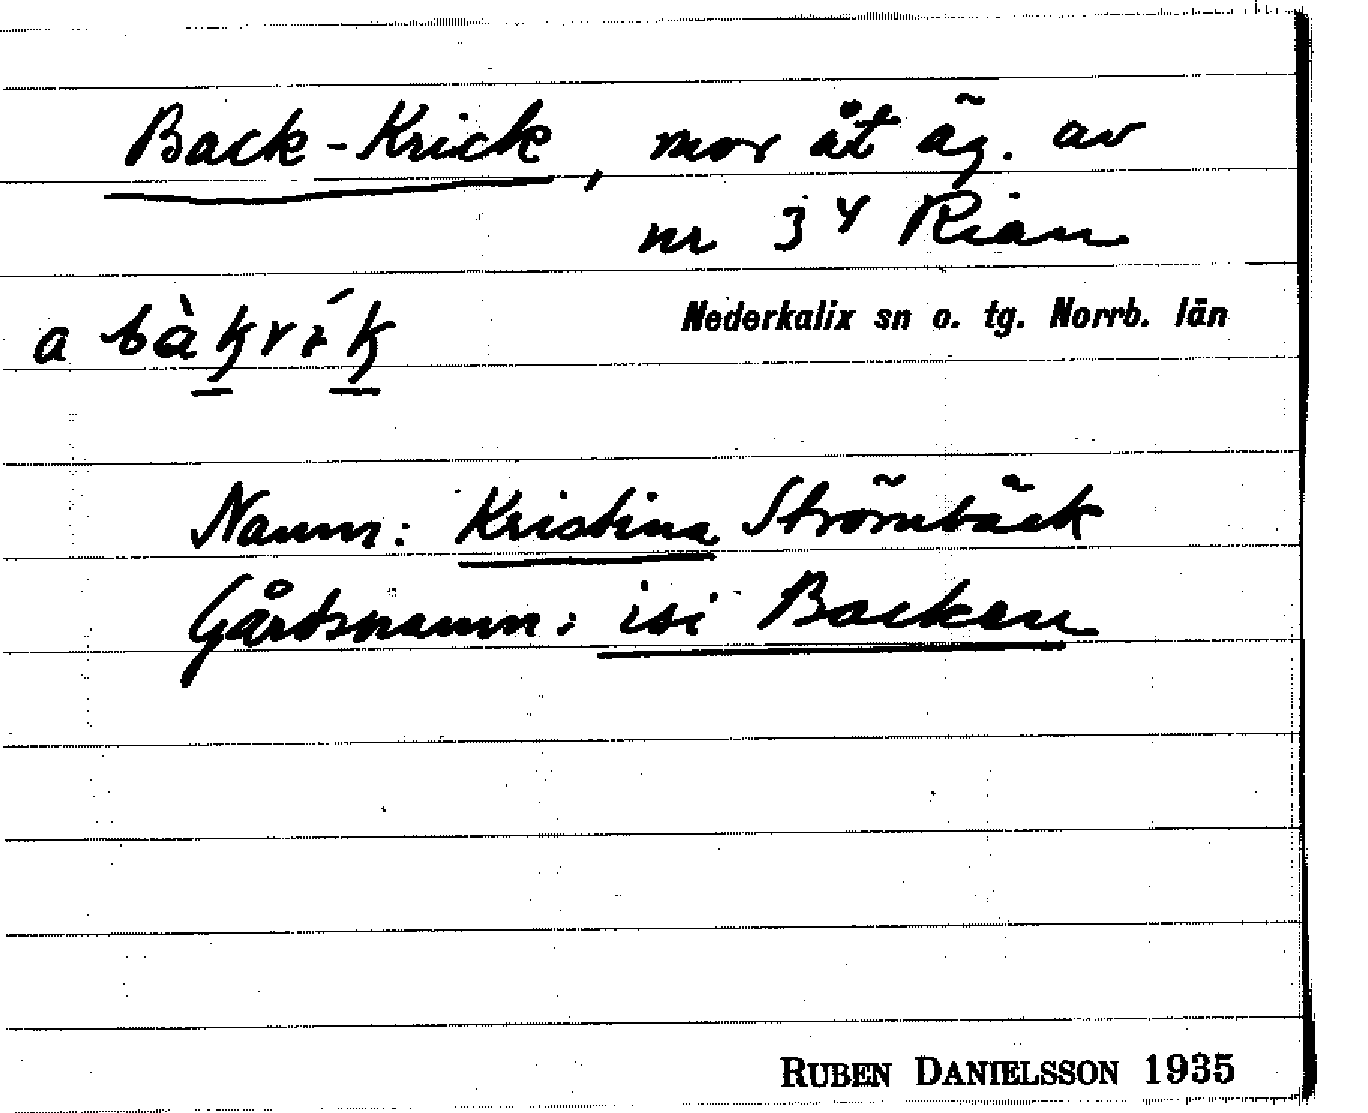 Back-Krick, mor åt äg. av
nr 34 Rian
a bàkrík
Nederkalix sn o. tg. Norrb. län
Namn: Kristina Strömbäck
Gårdsnamn: isi Backen
RUBEN DANIELSSON 1935